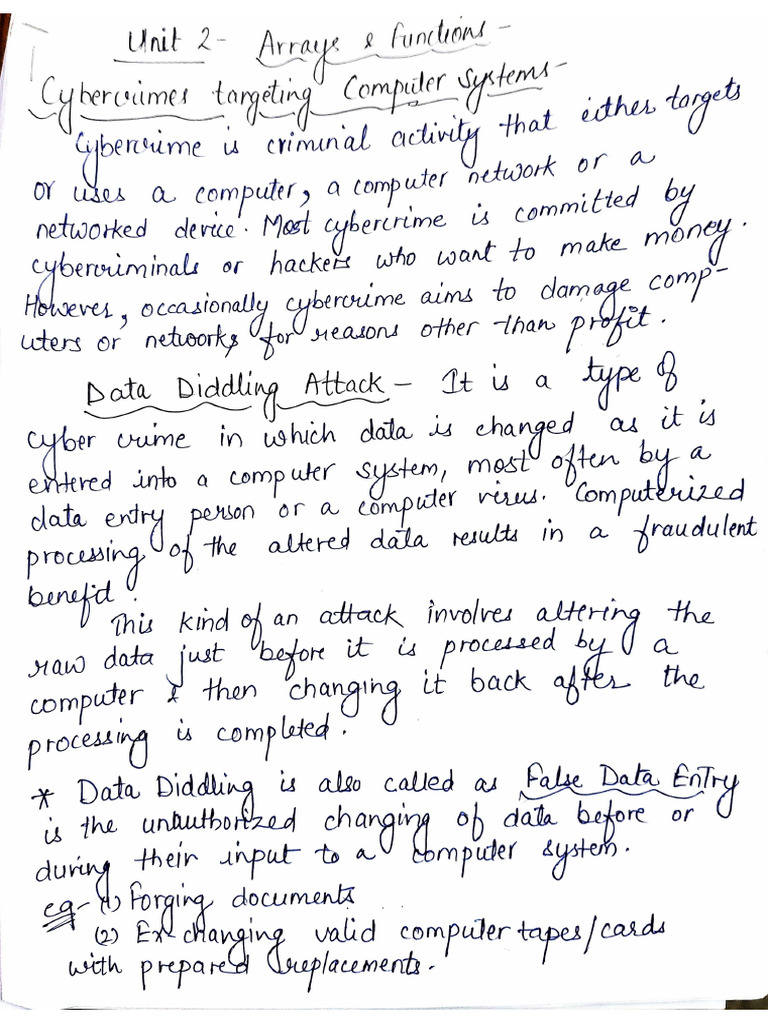 Unit 2 - Arrays & Functions -
Cybercrimes targeting Computer Systems -
Cybercrime is criminal activity that either targets
or uses a computer, a computer network or a
networked device. Most cybercrime is committed by
cybercriminals or hackers who want to make money.
However, occasionally cybercrime aims to damage comp-
uters or networks for reasons other than profit.
Data Diddling Attack - It is a type of
cyber crime in which data is changed as it is
entered into a computer system, most often by a
data entry person or a computer virus. Computerized
processing of the altered data results in a fraudulent
benefit.
This kind of an attack involves altering the
raw data just before it is processed by a
computer & then changing it back after the
processing is completed.
* Data Diddling is also called as False Data Entry
is the unauthorized changing of data before or
during their input to a computer system.
eg - (1) Forging documents
(2) Ex-changing valid computer tapes/cards
with prepared replacements.